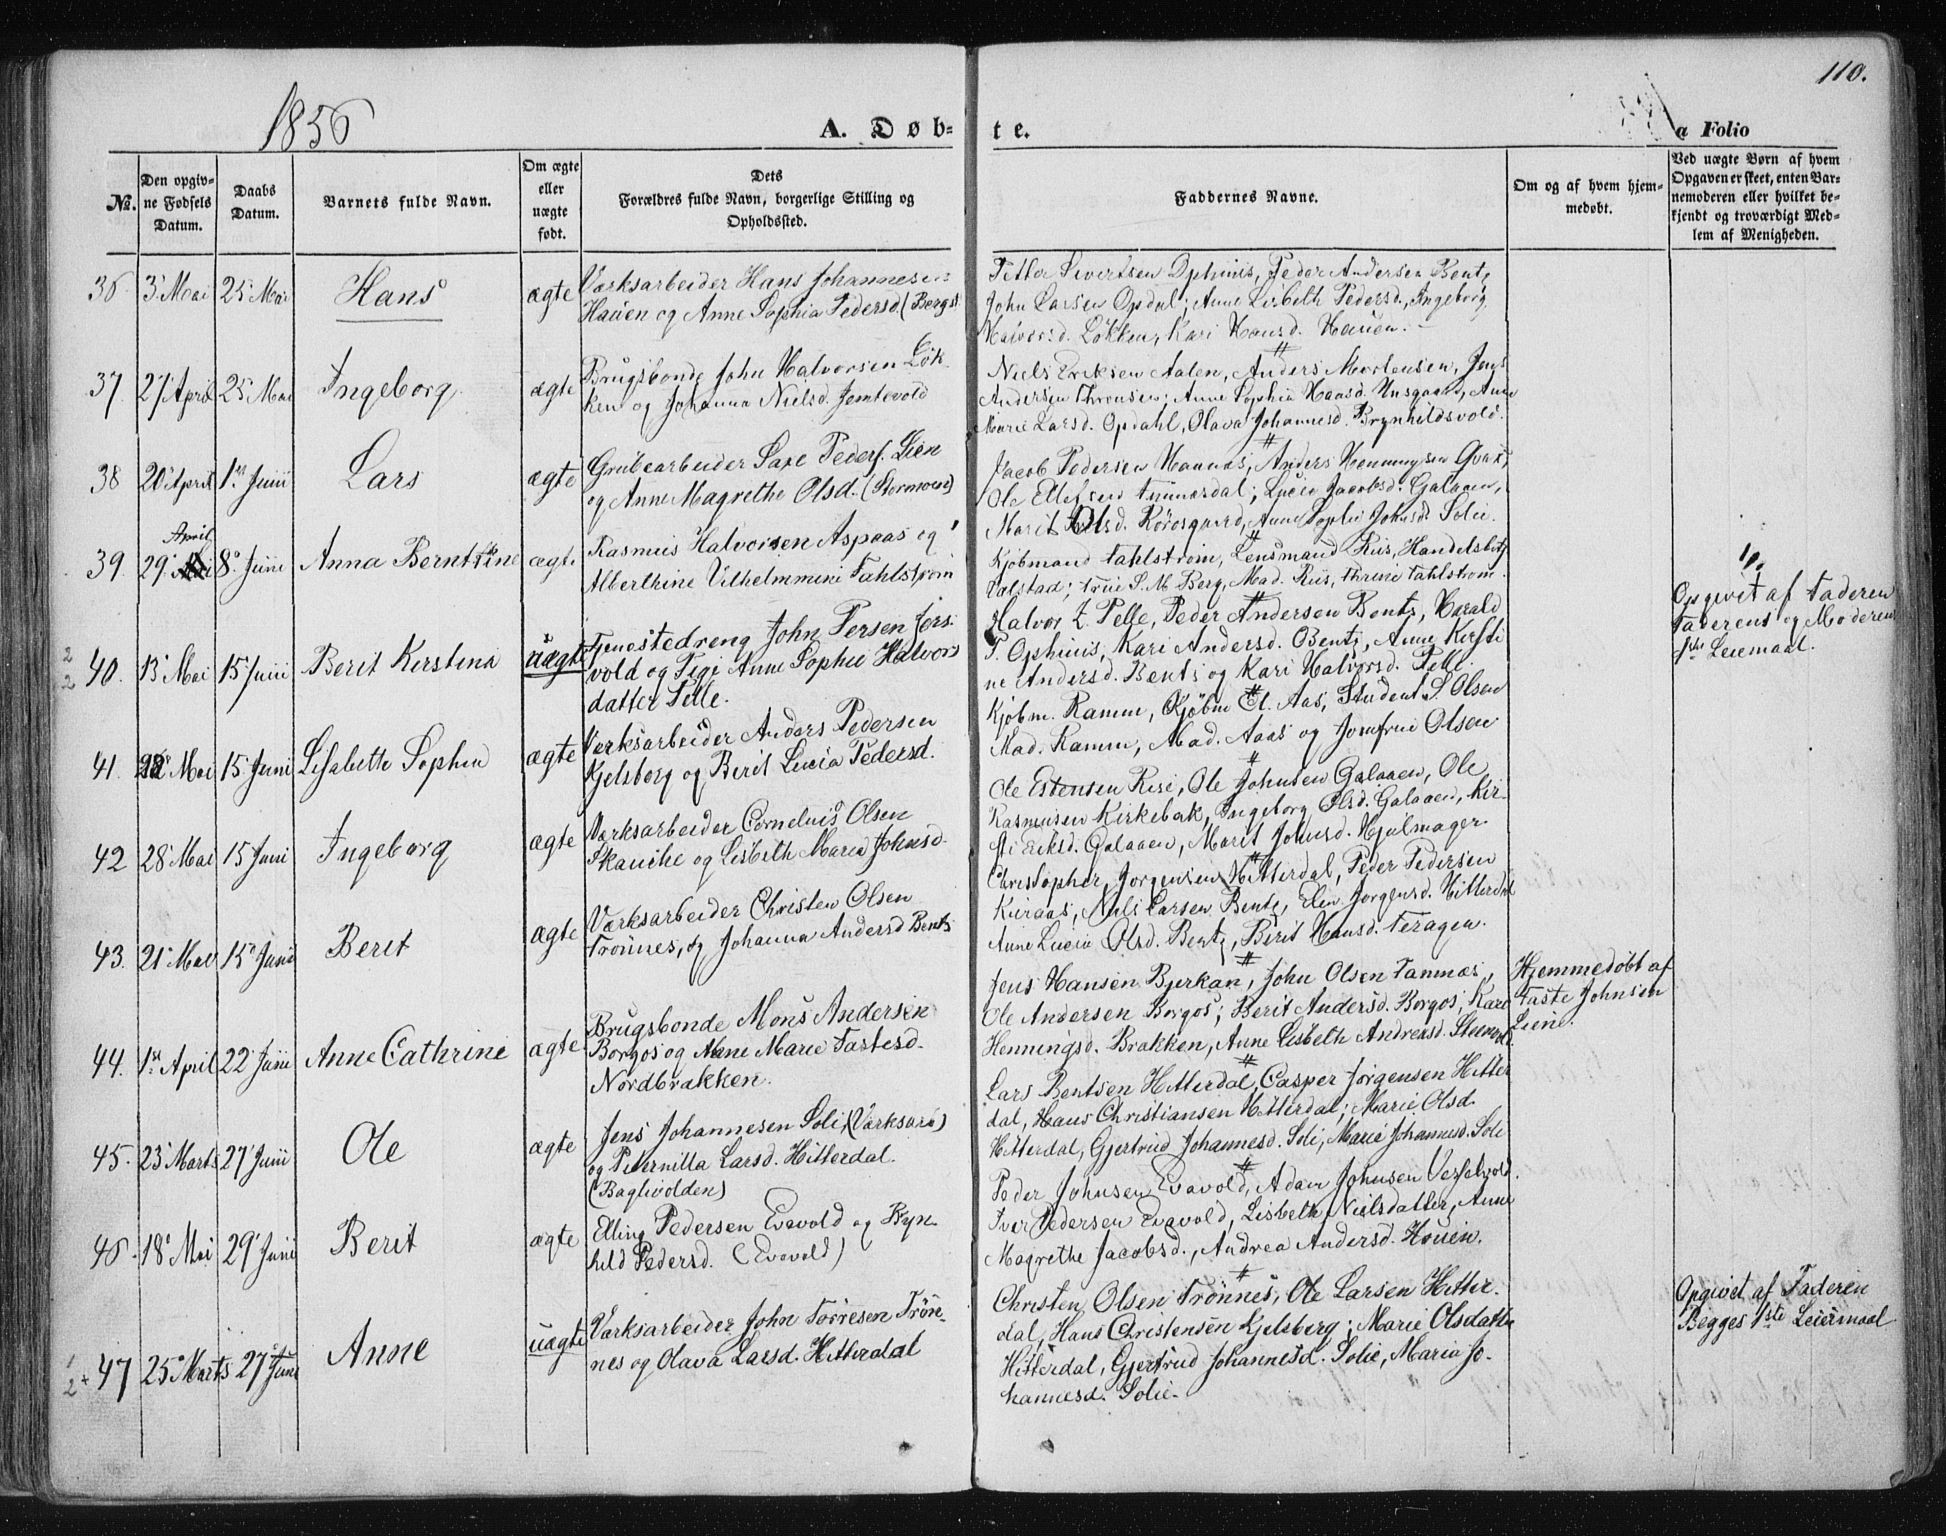 1856
A. Døb-
te.
110.
a Folio
No.
Den opgiv-
ne Fødsels
Datum.
Daabs
Datum.
Barnets fulde Navn.
Om ægte
eller
uægte
født.
Dets
Forældres fulde Navn, borgerlige Stilling og
Opholdssted.
Faddernes Navne.
Om og af hvem hjem-
medøbt.
Ved uægte Børn af hvem
Opgaven er skeet, enten Bar-
nemoderen eller hvilket be-
kjendt og troværdigt Med-
lem af Menigheden.
36 3 Mai 25 Mai Hans ægte
Værksarbeider Hans Johannesen
Hauen og Anne Sophia Pedersd. (Bergst
Sivertsen Ophuus, Peder Andersen Bentz
John Larsen Opdal; Anne Lisbeth Pedersd., Ingeborg
Halvorsd. Løkken, Kari Hansd. Hauen.
37 27 April 25 Mai Ingeborg ægte
Brugsbonde John Halvorsen Løk
ken og Johanna Nielsd. Jemtevold
Niels Eriksen Aalen, Anders Mortensen, Jens
Andersen Thronsen; Anne Sophia Haasd. Unsgaard, Anne
Marie Larsd. Opdahl, Olava Johannesd. Brynhildsvold.
38 20 April 1ste Juni Lars ægte
Grubearbeider Saxe Peders. Lien
og Anne Magrethe Olsd. (Stormoen)
Jacob Pedersen Hannas, Anders Henningsen
Ole Ellefsen; Lucie Jacobsd. Galaaen,
Marit Olsd. Rørosgaard, Anne Sophie Johnsd. Solie.
39. 29 April 8 Juni Anna Bernttine ægte
Rasmus Halvorsen Aspaas og
Alberthine Vilhelmmine Fahlstrøm
Kjøbmand Fahlstrøm, Lensmand Riis, Handelsbetj
Valstad; Frue S. M Berg, Mad. Riis, Thrine Fahlstrøm.
2
2 40. 13 Mai 15 Juni Berit Kirstina uægte
Tjenestedreng John Persen Fors
vold og Pige Anne Sophie Halvors
datter Pelle.
Halvor T. Pelle, Peder Andersen Bentz, Harald
T. Ophuus, Kari Andersd. Bentz, Anne Kirsti
ne Andersd. Bentz og Kari Halvorsd. Pelle.
Opgivet af Faderen
Faderens og Moderens
1ste Leiemaal.
41. Mai 15 Juni Lisabeth Sophia ægte
Værksarbeider Anders Pedersen
Kjelsberg og Berit Lucia Pedersd.
Kjøbm. Ramm, Kjøbm El. Aas, Student S. Olsen
Mad. Ramm, Mad. Aaas og Jomfrue Olsen
42 28 Mai 15 Juni Ingeborg ægte
Værksarbeider Cornelius Olsen
Skanche og Lisbeth Maria Johnsd.
Ole Estensen Rise, Ole Johnsen Galaaen, Ole
Rasmusen Kirkebak, Ingeborg Olsd. Galaaen, Kir-
sti Eriksd. Galaaen, Marit Johnsd. Hjulmager.
43. 21 Mai 15 Juni Berit ægte
Værksarbeider Christen Olsen
Trønnes, og Johanna Andersd Bentz
Christopher Jorgensen Hitterdal, Peder Pedersen
Kuraas, Nils Larsen Bentz, Elen Jorgensd. Hitterdal
Anne Lucie Olsd. Bentz, Berit Hansd. Feragen.
44. 1ste April 22 Juni Anne Cathrine ægte
Brugsbonde Mons Andersen
Borgos og Anne Marie Fastesd.
Nordbrakken.
Jens Hansen Bjerkan, John Olsen Tamnes,
Ole Andersen Borgos; Berit Andersd. Borgos, Kare
Henningsd. Brakken, Anne Lisbeth Andreasd.
Hjemmedøbt af
Faste Johnsen
45. 23 Marts 27 Juni Ole ægte
Jens Johannesen Soli (Værksarb)
og Peternilla Larsd. Hitterdal.
(Baglivolden)
Lars Bentsen Hitterdal, Casper Jorgensen Hitter
dal, Hans Christiansen Hitterdal; Marie Olsd.
Hitterdal, Gjertrud Johannesd. Soli, Marie Johannesd. Soli
46. 18 Mai 29 Juni Berit ægte
Elling Pedersen Evavold og Bryn
hild Pedersd. (Evavold)
Peder Johnsen Evavold, Adam Johnsen Vesselvold.
Iver Pedersen Evavold, Lisbeth Nielsdatter, Anne
Magrethe Jacobsd., Andrea Andersd. Houen.
1
2 + 47 25 Marts 27 Juni Anne uægte
Værksarbeider John Torresen Trøn-
nes og Olava Larsd. Hitterdal
Christen Olsen Trønnes, Ole Larsen Hitter-
dal, Hans Christensen Kjelsberg; Marie Olsdatter
Hitterdal, Gjertrud Johannesd. Solie, Maria Jo-
hannesd. Solie.
Opgivet af Faderen
Begges 1ste Leiermaal